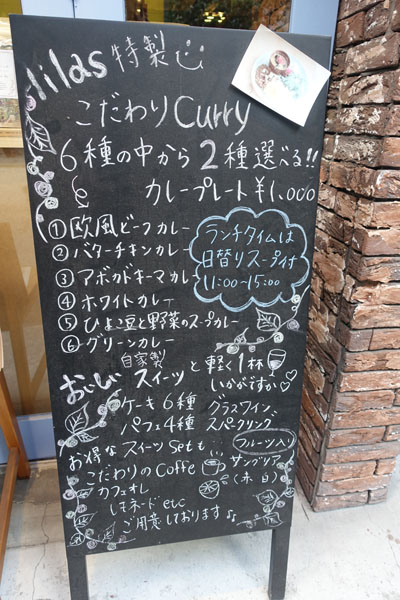 lilas 特製
こだわりCurry
6種の中から2種選べる!!
カレープレート ¥1,000
①欧風ビーフカレー
②バターチキンカレー
③アボカドキーマカレー
④ホワイトカレー
⑤ひよこ豆と野菜のスープカレー
⑥グリーンカレー
ランチタイムは
日替りスープ付
11:00-15:00
自家製
おいしいスイーツと軽く1杯
いかがですか♡
ケーキ6種
パフェ4種
グラスワイン、
スパークリング
お得なスイーツSetも
フルーツ入り
こだわりのCoffe
サングリア
(赤、白)
カフェオレ
レモネードetc
ご用意しております♪